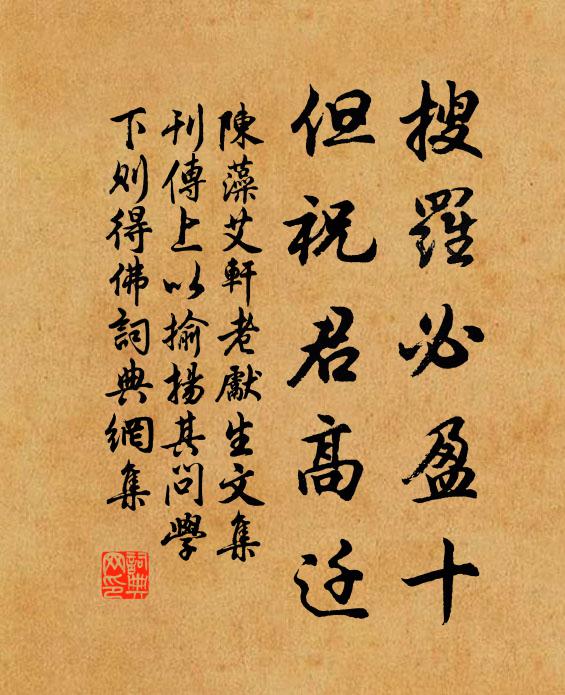 搜羅必盈十
但祝君高迁
陳藻艾軒老獻生文集
刊傳上以揄揚其问學
下则得佛詞典網集
詞典网印